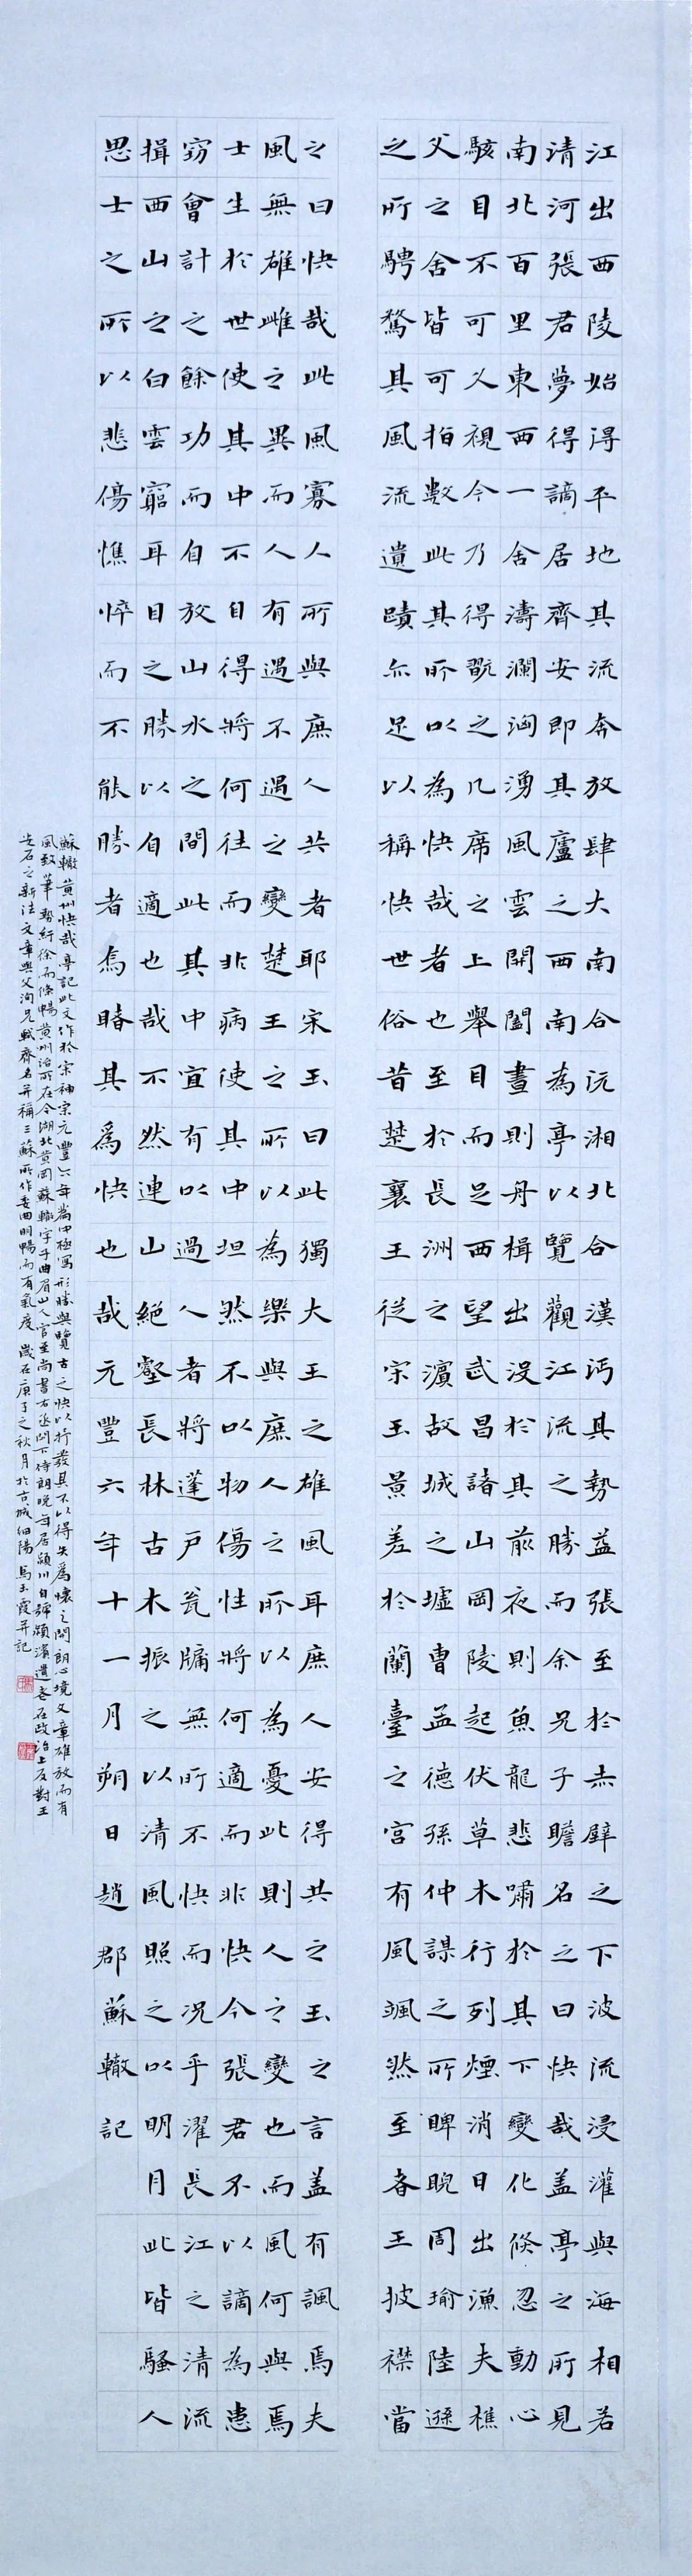 江出西陵始得平地其流奔放肆大南合沅湘北合漢沔其勢益張至於赤壁之下波流浸灌與海相若
清河張君夢得謫居齊安即其廬之西南為亭以覽觀江流之勝而余兄子瞻名之曰快哉蓋亭之所見
南北百里東西一舍濤瀾洶湧風雲開闔晝則舟楫出没於其前夜則魚龍悲嘯於其下變化倏忽動心
駭目不可久視今乃得翫之几席之上舉目而足西望武昌諸山岡陵起伏草木行列煙消日出漁夫樵
父之舍皆可指數此其所以為快哉者也至於長洲之濱故城之墟曹孟德孫仲謀之所睥睨周瑜陸遜
之所騁騖其風流遺蹟亦足以稱快世俗昔楚襄王從宋玉景差於蘭臺之宮有風颯然至者王披襟當
之曰快哉此風寡人所與庶人共者耶宋玉曰此獨大王之雄風耳庶人安得共之玉之言蓋有諷焉夫
風無雄雌之異而人有遇不遇之變楚王之所以為樂與庶人之所以為憂此則人之變也而風何與焉
士生於世使其中不自得將何往而非病使其中坦然不以物傷性將何適而非快今張君不以謫為患
竊會計之餘功而自放山水之間此其中宜有以過人者將蓬戶瓮牖無所不快而況乎濯長江之清流
揖西山之白雲窮耳目之勝以自適也哉不然連山絕壑長林古木振之以清風照之以明月此皆騷人
思士之所以悲傷憔悴而不能勝者焉睹其為快也哉元豐六年十一月朔日趙郡蘇轍記
蘇轍黃州快哉亭記此文作於宋神宗元豐六年篇中極寫形勝與覽古之快以抒發其不以得失為懷之開朗心境文章雄放而有
風致筆勢紆徐而條暢黃州治所在今湖北黃岡蘇轍字子由眉山人官至尚書右丞門下侍郎晚年居潁川自號潁濱遺老在政治上反對王
安石之新法文章與父洵兄軾齊名并稱三蘇所作委曲明暢而有氣度 歲在庚子之秋月於古城細陽馬玉霞并記